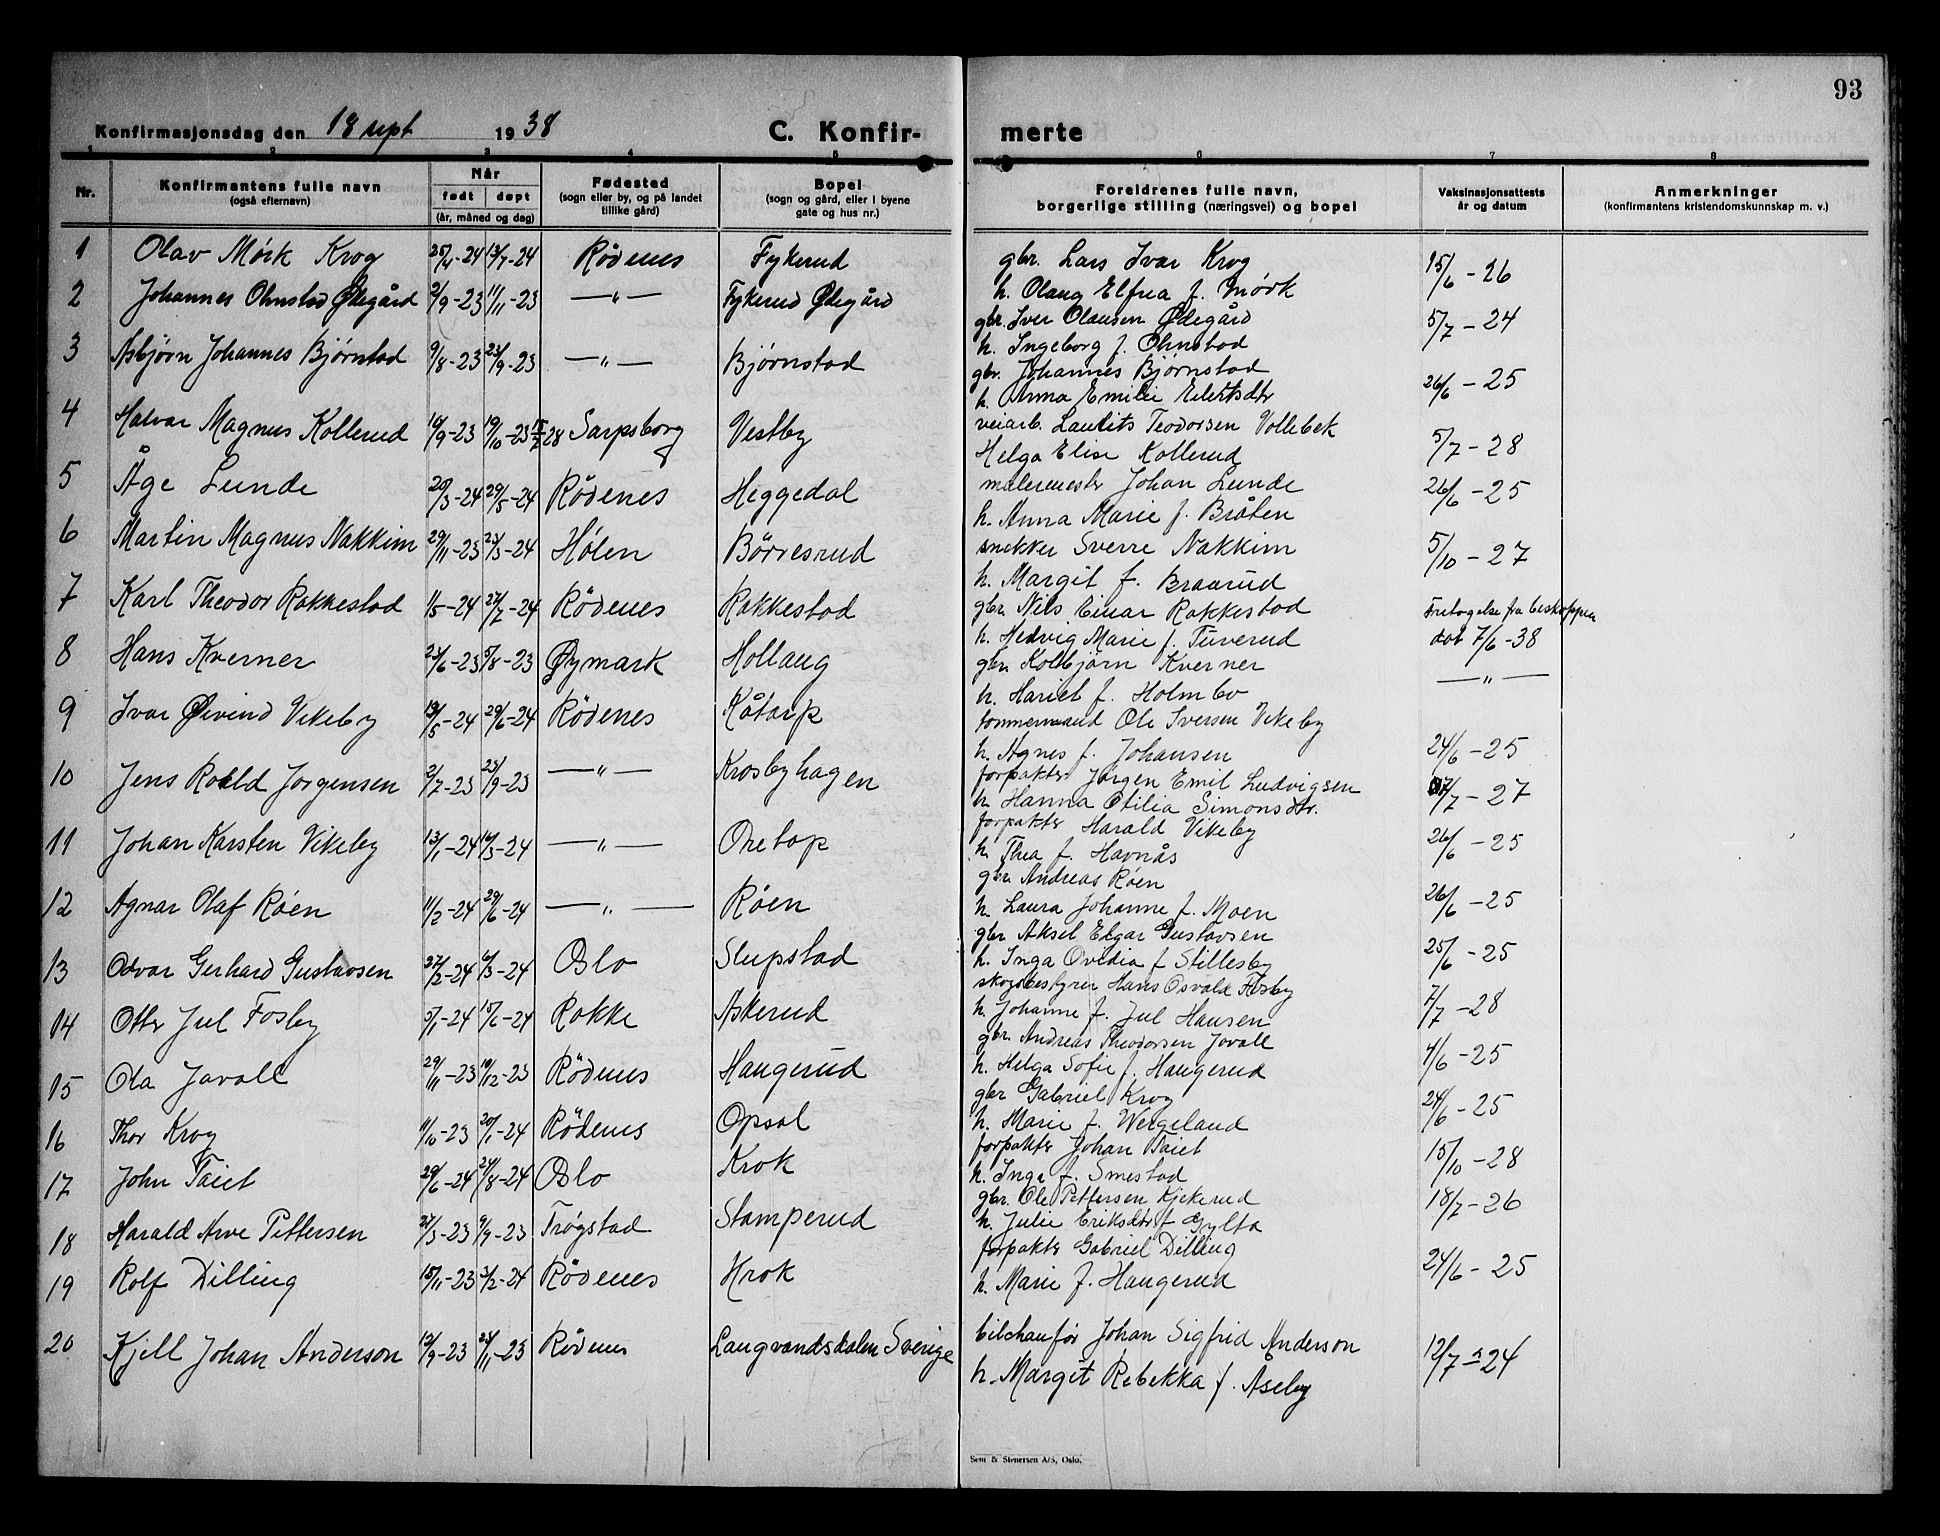 93
Konfirmasjonsdag den 18 sept 1938 C. Konfir- merte
1 2 3 4 5 6 7 8
Nr. Konfirmantens fulle navn (også efternavn) Når født døpt (år, måned og dag) Fødested (sogn eller by, og på landet tillike gård) Bopel (sogn og gård, eller i byene gate og hus nr.) Foreldrenes fulle navn, borgerlige stilling (næringsvei) og bopel Vaksinasjonsattests år og datum Anmerkninger (konfirmantens kristendomskunnskap m. v.)
1 Olav Mørk Krog 25/4-24 13/7-24 Rødenes Fykerud gbr. Lars Ivar Krog 15/6-26
h. Olaug Elfria f. Mørk
2 Johannes Ohnstad Ødegård 2/9-23 11/11-23 —"— Fykerud Ødegård gbr. Iver Olausen Ødegård 5/7-24
h. Ingeborg f. Ohnstad
3 Asbjørn Johannes Bjørnstad 9/8-23 23/9-23 —"— Bjørnstad gbr. Johannes Bjørnstad 26/6-25
h. Anna Emilie Eilertsdtr
4 Halvar Magnus Kollerud 18/9-23 19/10-23 28 Sarpsborg Vestby veiarb. Laurits Teodorsen Vollebek 5/7-28
Helga Elise Kollerud
5 Åge Lunde 20/3-24 29/5-24 Rødenes Heggedal malermester Johan Lunde 26/6-25
h. Anna Marie f. Bråten
6 Martin Magnus Nakkim 29/11-23 23/3-24 Hølen Børresrud snekker Sverre Nakkim 5/10-27
h. Margit f. Braarud
7 Karl Theodor Rakkestad 1/5-24 27/7-24 Rødenes Rakkestad gbr Nils Einar Rakkestad Fritagelse fra biskoppen
h. Hedvig Marie f. Tuverud dat 7/6-38
8 Hans Kverner 23/6-23 5/8-23 Øymark Hollaug gbr. Kolbjørn Kverner —"—
h. Hariet f. Holmbo
9 Ivar Øivind Vikeby 13/5-24 29/6-24 Rødenes Kåtorp tømmermand Ole Iversen Vikeby
h. Agnes f. Johansen 24/6-25
10 Jens Roald Jørgensen 2/7-23 23/9-23 —"— Krosbyhagen forpakter Jørgen Emil Ludvigsen 7/7-27
h Hanna Otilia Simonsdtr.
11 Johan Karsten Vikeby 13/1-24 16/3-24 —"— Oretop forpakter Harald Vikeby 26/6-25
h. Thea f. Havnås
12 Agnar Olaf Røen 11/2-24 29/6-24 —"— Røen gbr. Andreas Røen 26/6-25
h. Laura Johanne f. Moen
13 Odvar Gerhard Gustavsen 27/2-24 6/3-24 Oslo Slupstad gbr Aksel Elgar Gustavsen 25/6-25
h. Inga Ovidia f Stillesby
14 Otto Jul Fosby 5/1-24 15/6-24 Rokke Askerud skogbestyrer Hans Osvald Fosby 7/7-28
h. Johanne f. Jul Hansen
15 Ola Javall 29/11-23 19/12-23 Rødenes Haugerud gbr. Andreas Theodorsen Javall 4/6-25
h. Helga Sofie f. Haugerud
16 Thor Krog 11/10-23 20/1-24 Rødenes Opsal gbr Gabriel Krog 24/6-25
h. Marie f. Weigeland
17 John Taiet 29/6-24 24/8-24 Oslo Krok forpakter Johan Taiet 15/10-28
h. Inga f. Smestad
18 Harald Arve Pettersen 27/3-23 9/9-23 Trøgstad Stamperud gbr. Ole Pettersen Kjekerud 18/7-26
h. Julie Eriksdtr f Gylta
19 Rolf Dilling 15/11-23 3/2-24 Rødenes Krok forpakter Gabriel Dilling 24/6-25
h. Marie f. Haugerud
20 Kjell Johan Anderson 12/9-23 25/11-23 Rødenes Langvandsdalen Sverige bilchaufør Johan Sigfrid Anderson 12/7-24
h. Margit Rebekka f. Åseby
Sem & Stenersen A/S, Oslo.